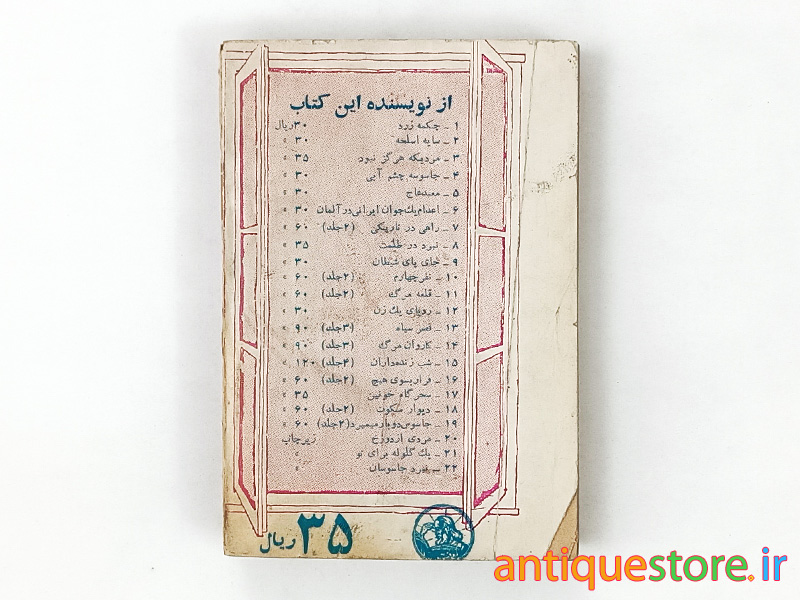 از نویسنده این کتاب
۱ ـ چکمه زرد ۳۰ ریال
۲ ـ سایه اسلحه ۳۰ »
۳ ـ مردیکه هرگز نبود ۳۵ »
۴ ـ جاسوسه چشم آبی ۳۰ »
۵ ـ معبد عاج ۳۰ »
۶ ـ اعدام یک جوان ایرانی در آلمان ۳۰ »
۷ ـ راهی در تاریکی (۲جلد) ۶۰ »
۸ ـ نبرد در ظلمت ۳۵ »
۹ ـ جای پای شیطان ۳۰ »
۱۰ ـ نفر چهارم (۲جلد) ۶۰ »
۱۱ ـ قلعه مرگ (۲جلد) ۶۰ »
۱۲ ـ رویای یک زن ۳۰ »
۱۳ ـ قصر سیاه (۳جلد) ۹۰ »
۱۴ ـ کاروان مرگ (۳جلد) ۹۰ »
۱۵ ـ شب زنده‌داران (۴جلد) ۱۲۰ »
۱۶ ـ فرار بسوی هیچ (۲جلد) ۶۰ »
۱۷ ـ سحرگاه خونین ۳۵ »
۱۸ ـ دیوار سکوت (۲جلد) ۶۰ »
۱۹ ـ جاسوس دوبار میمیرد (۲جلد) ۶۰ »
۲۰ ـ مردی از دوزخ زیر چاپ
۲۱ ـ یک گلوله برای تو »
۲۲ ـ نبرد جاسوسان »
۳۵ ریال
antiquestore.ir